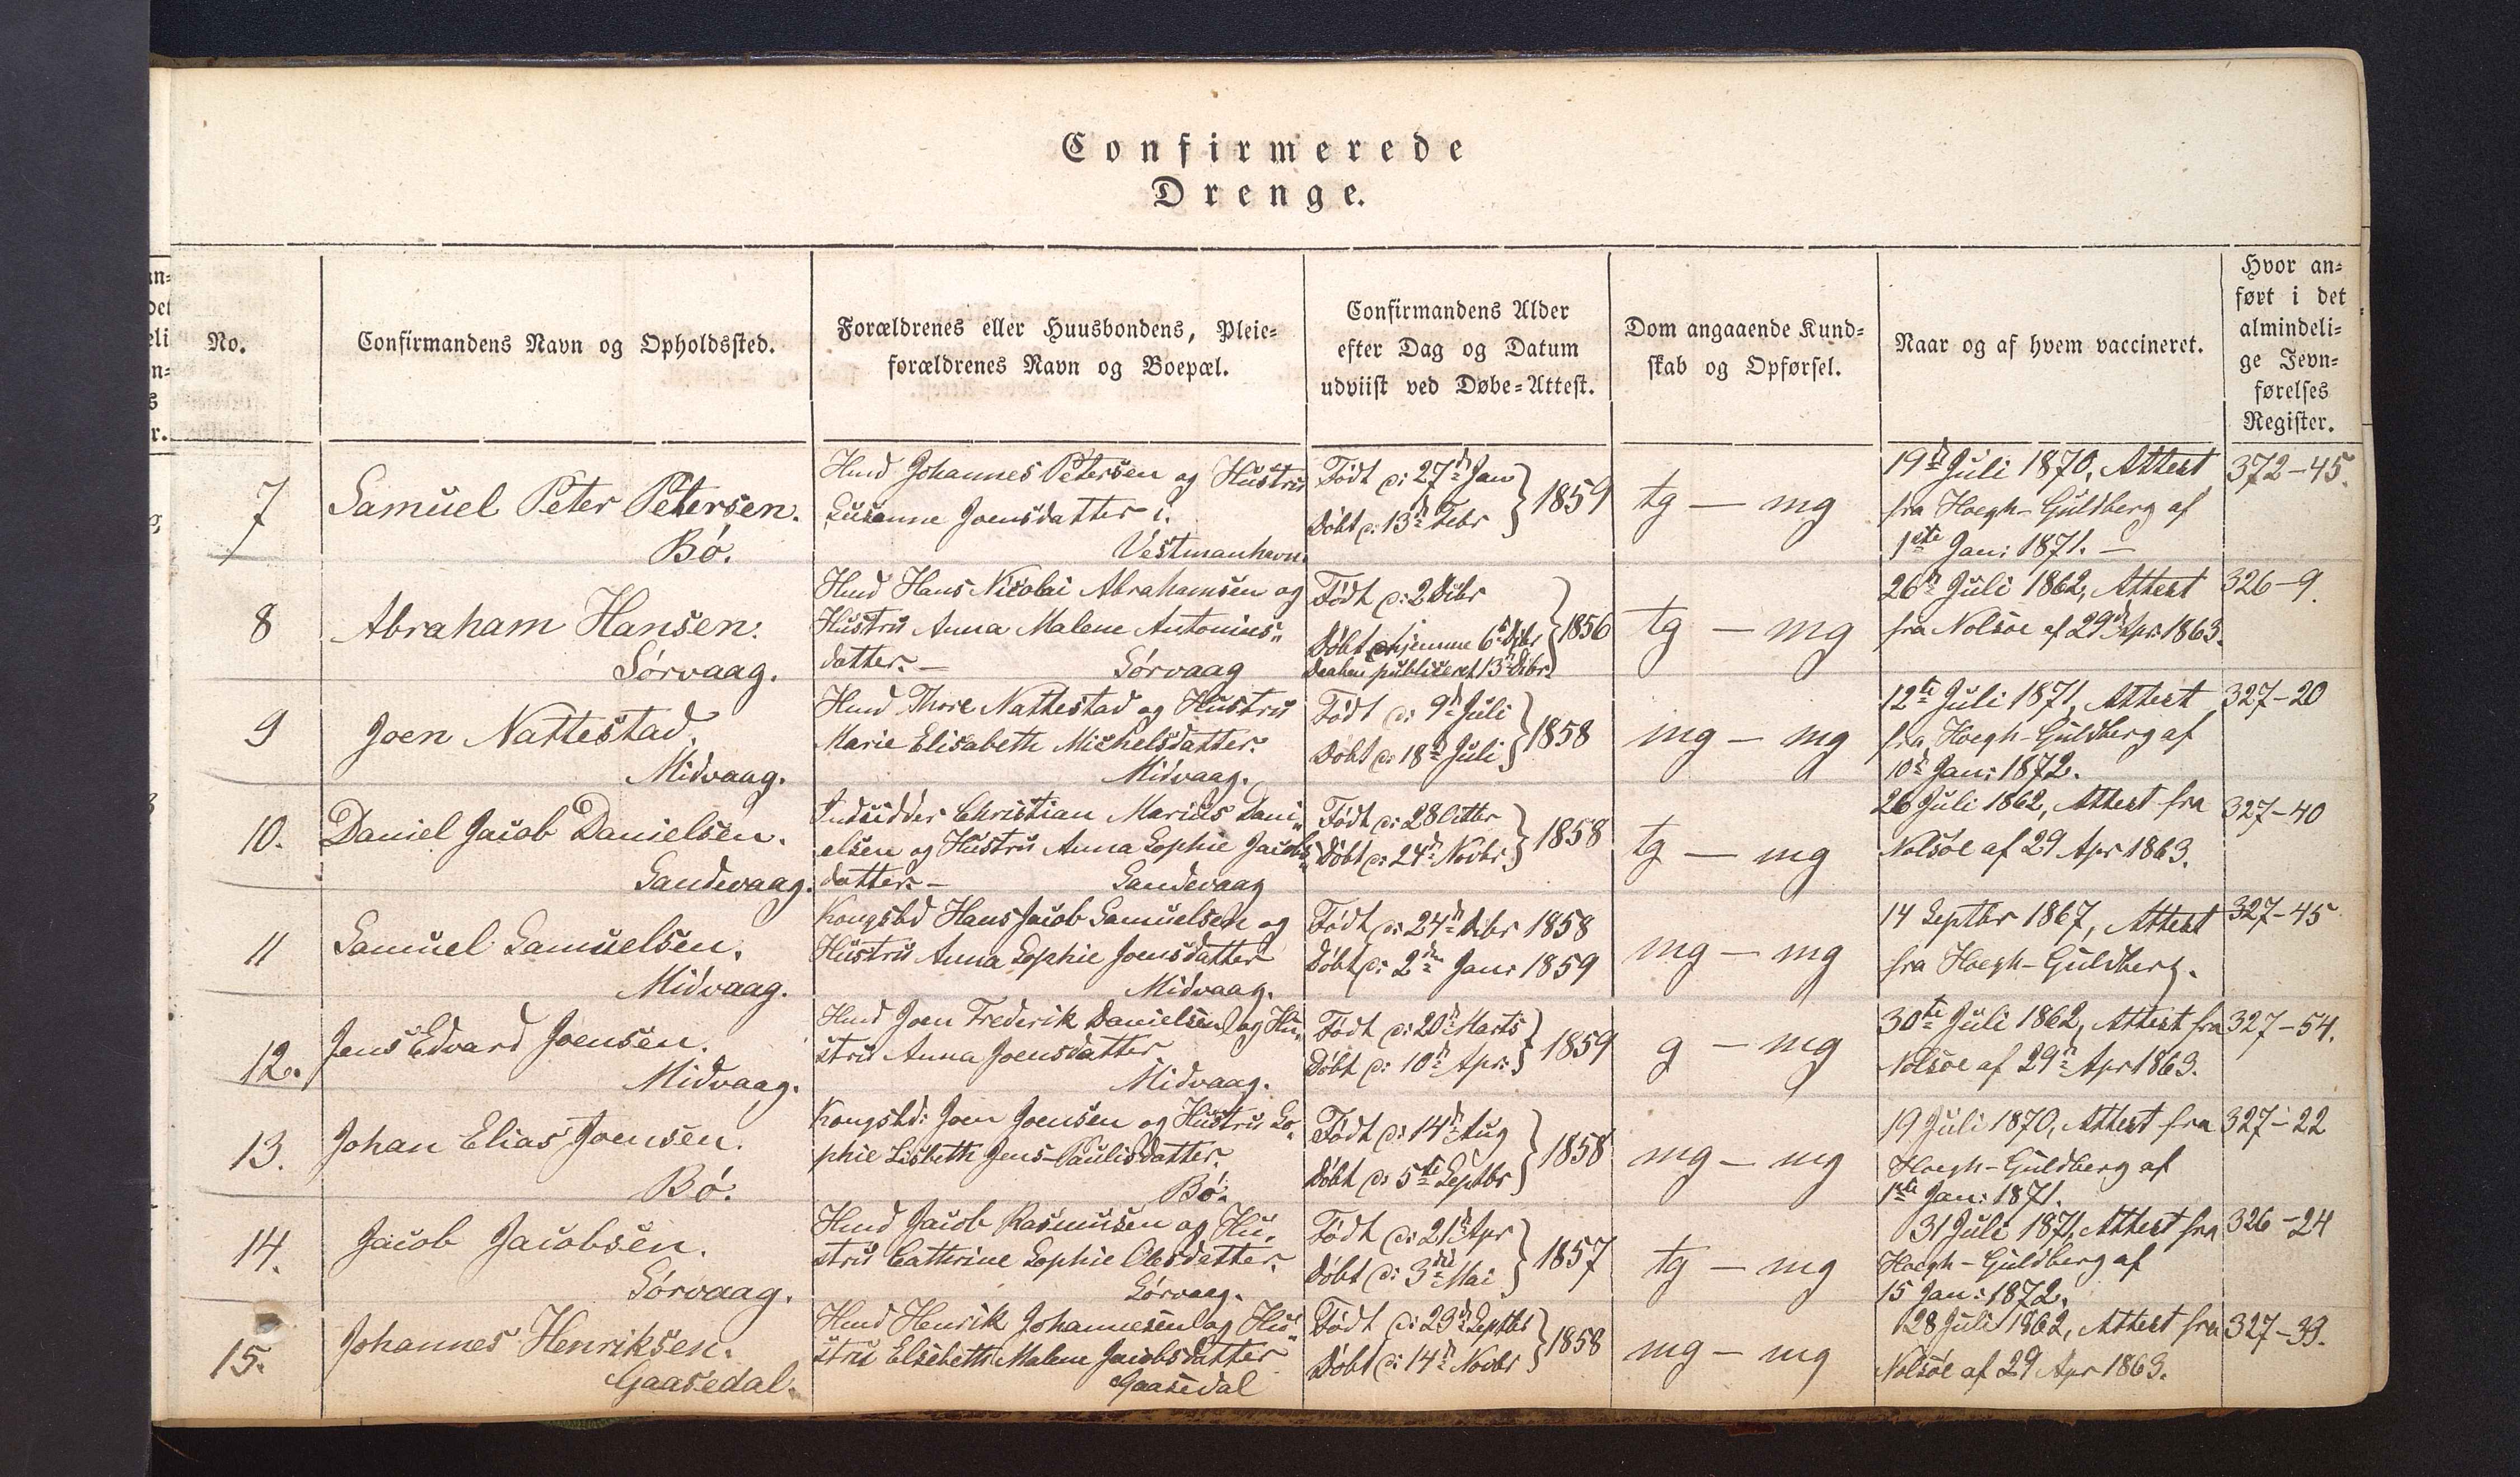 Confirmerede
Drenge.
No.
Confirmandens Navn og Opholdssted.
Forældrenes eller Huusbondens, Pleie-
forældrenes Navn og Boepæl.
Confirmandens Alder
efter Dag og Datum
udviist ved Døbe-Attest.
Dom angaaende Kund-
skab og Opførsel.
Naar og af hvem vaccineret.
Hvor an-
ført i det
almindeli-
ge Jevn-
førelses
Register.
7
Samuel Peter Petersen.
Bö.
Hmd Johannes Petersen og Hustru
Susanne Joensdatter i.
Vestmanhavn.
Födt d: 27d Jan
Döbt d: 13d Febr
1859
tg — mg
19d Juli 1870, Attest
fra Hoegh-Guldberg af
1ste Jan: 1871. —
372-45.
8
Abraham Hansen.
Sörvaag.
Hmd Hans Nicolai Abrahamsen og
Hustru Anna Malene Antonius„
datter. —
Sörvaag
Födt d: 2 Dibr
Döbt hjemme 6d Dibr
Daaben publiceret 13d Dibr
1856
tg — mg
26d Juli 1862, Attest
fra Nolsöe af 29d Apr: 1863.
326-9.
9
Joen Nattestad.
Midvaag.
Hmd Thore Nattestad og Hustru
Marie Elisabeth Michelsdatter.
Midvaag.
Födt d: 9d Juli
Döbt d: 18d Juli
1858
mg — mg
12te Juli 1871, Attest
fra Hoegh-Guldberg af
10d Jan: 1872.
327-20
10.
Daniel Jacob Danielsen.
Sandevaag.
Indsidder Christian Marius Dani„
elsen og Hustru Anna Sophie Jacobs„
datter. —
Sandevaag
Födt d: 28 Octbr
Döbt d: 24d Novbr
1858
tg — mg
26 Juli 1862, Attest fra
Nolsöe af 29 Apr 1863.
327-40
11
Samuel Samuelsen.
Midvaag.
Kongsbd Hans Jacob Samuelsen og
Hustru Anna Sophie Joensdatter
Midvaag.
Födt d: 24d Dibr 1858
Döbt d: 2d Jan: 1859
mg — mg
14 Septbr 1867, Attest
fra Hoegh-Guldberg.
327-45
12.
Jens Edvard Joensen.
Midvaag.
Hmd Joen Frederik Danielsen og Hu„
stru Anna Joensdatter
Midvaag.
Födt d: 20d Marts
Döbt d: 10d Apr:
1859
g — mg
30te Juli 1862, Attest fra
Nolsöe af 29d Apr 1863.
327-54.
13.
Johan Elias Joensen.
Bö.
Kongsbd: Joen Joensen og Hustru So„
phie Lisbeth Jens-Paulisdatter.
Bö.
Födt d: 14d Aug
Döbt d: 5te Septbr
1858
mg — mg
19 Juli 1870, Attest fra
Hoegh-Guldberg af
1ste Jan: 1871.
327-22
14.
Jacob Jacobsen.
Sörvaag.
Hmd Jacob Rasmusen og Hu„
stru Cathrine Sophie Olesdatter.
Sörvaag.
Födt d: 21d Apr
Döbt d: 3die Mai
1857
tg — mg
31 Juli 1871, Attest fra
Hoegh-Guldberg af
15 Jan: 1872.
326-24
15.
Johannes Henriksen.
Gaasedal.
Hmd Henrik Johannesen og Hu„
stru Elsebeth Malene Jacobsdatter
Gaasedal
Födt d: 29d Septbr
Döbt d: 14d Novbr
1858
mg — mg
28 Juli 1862, Attest fra
Nolsöe af 29 Apr 1863.
327-33.